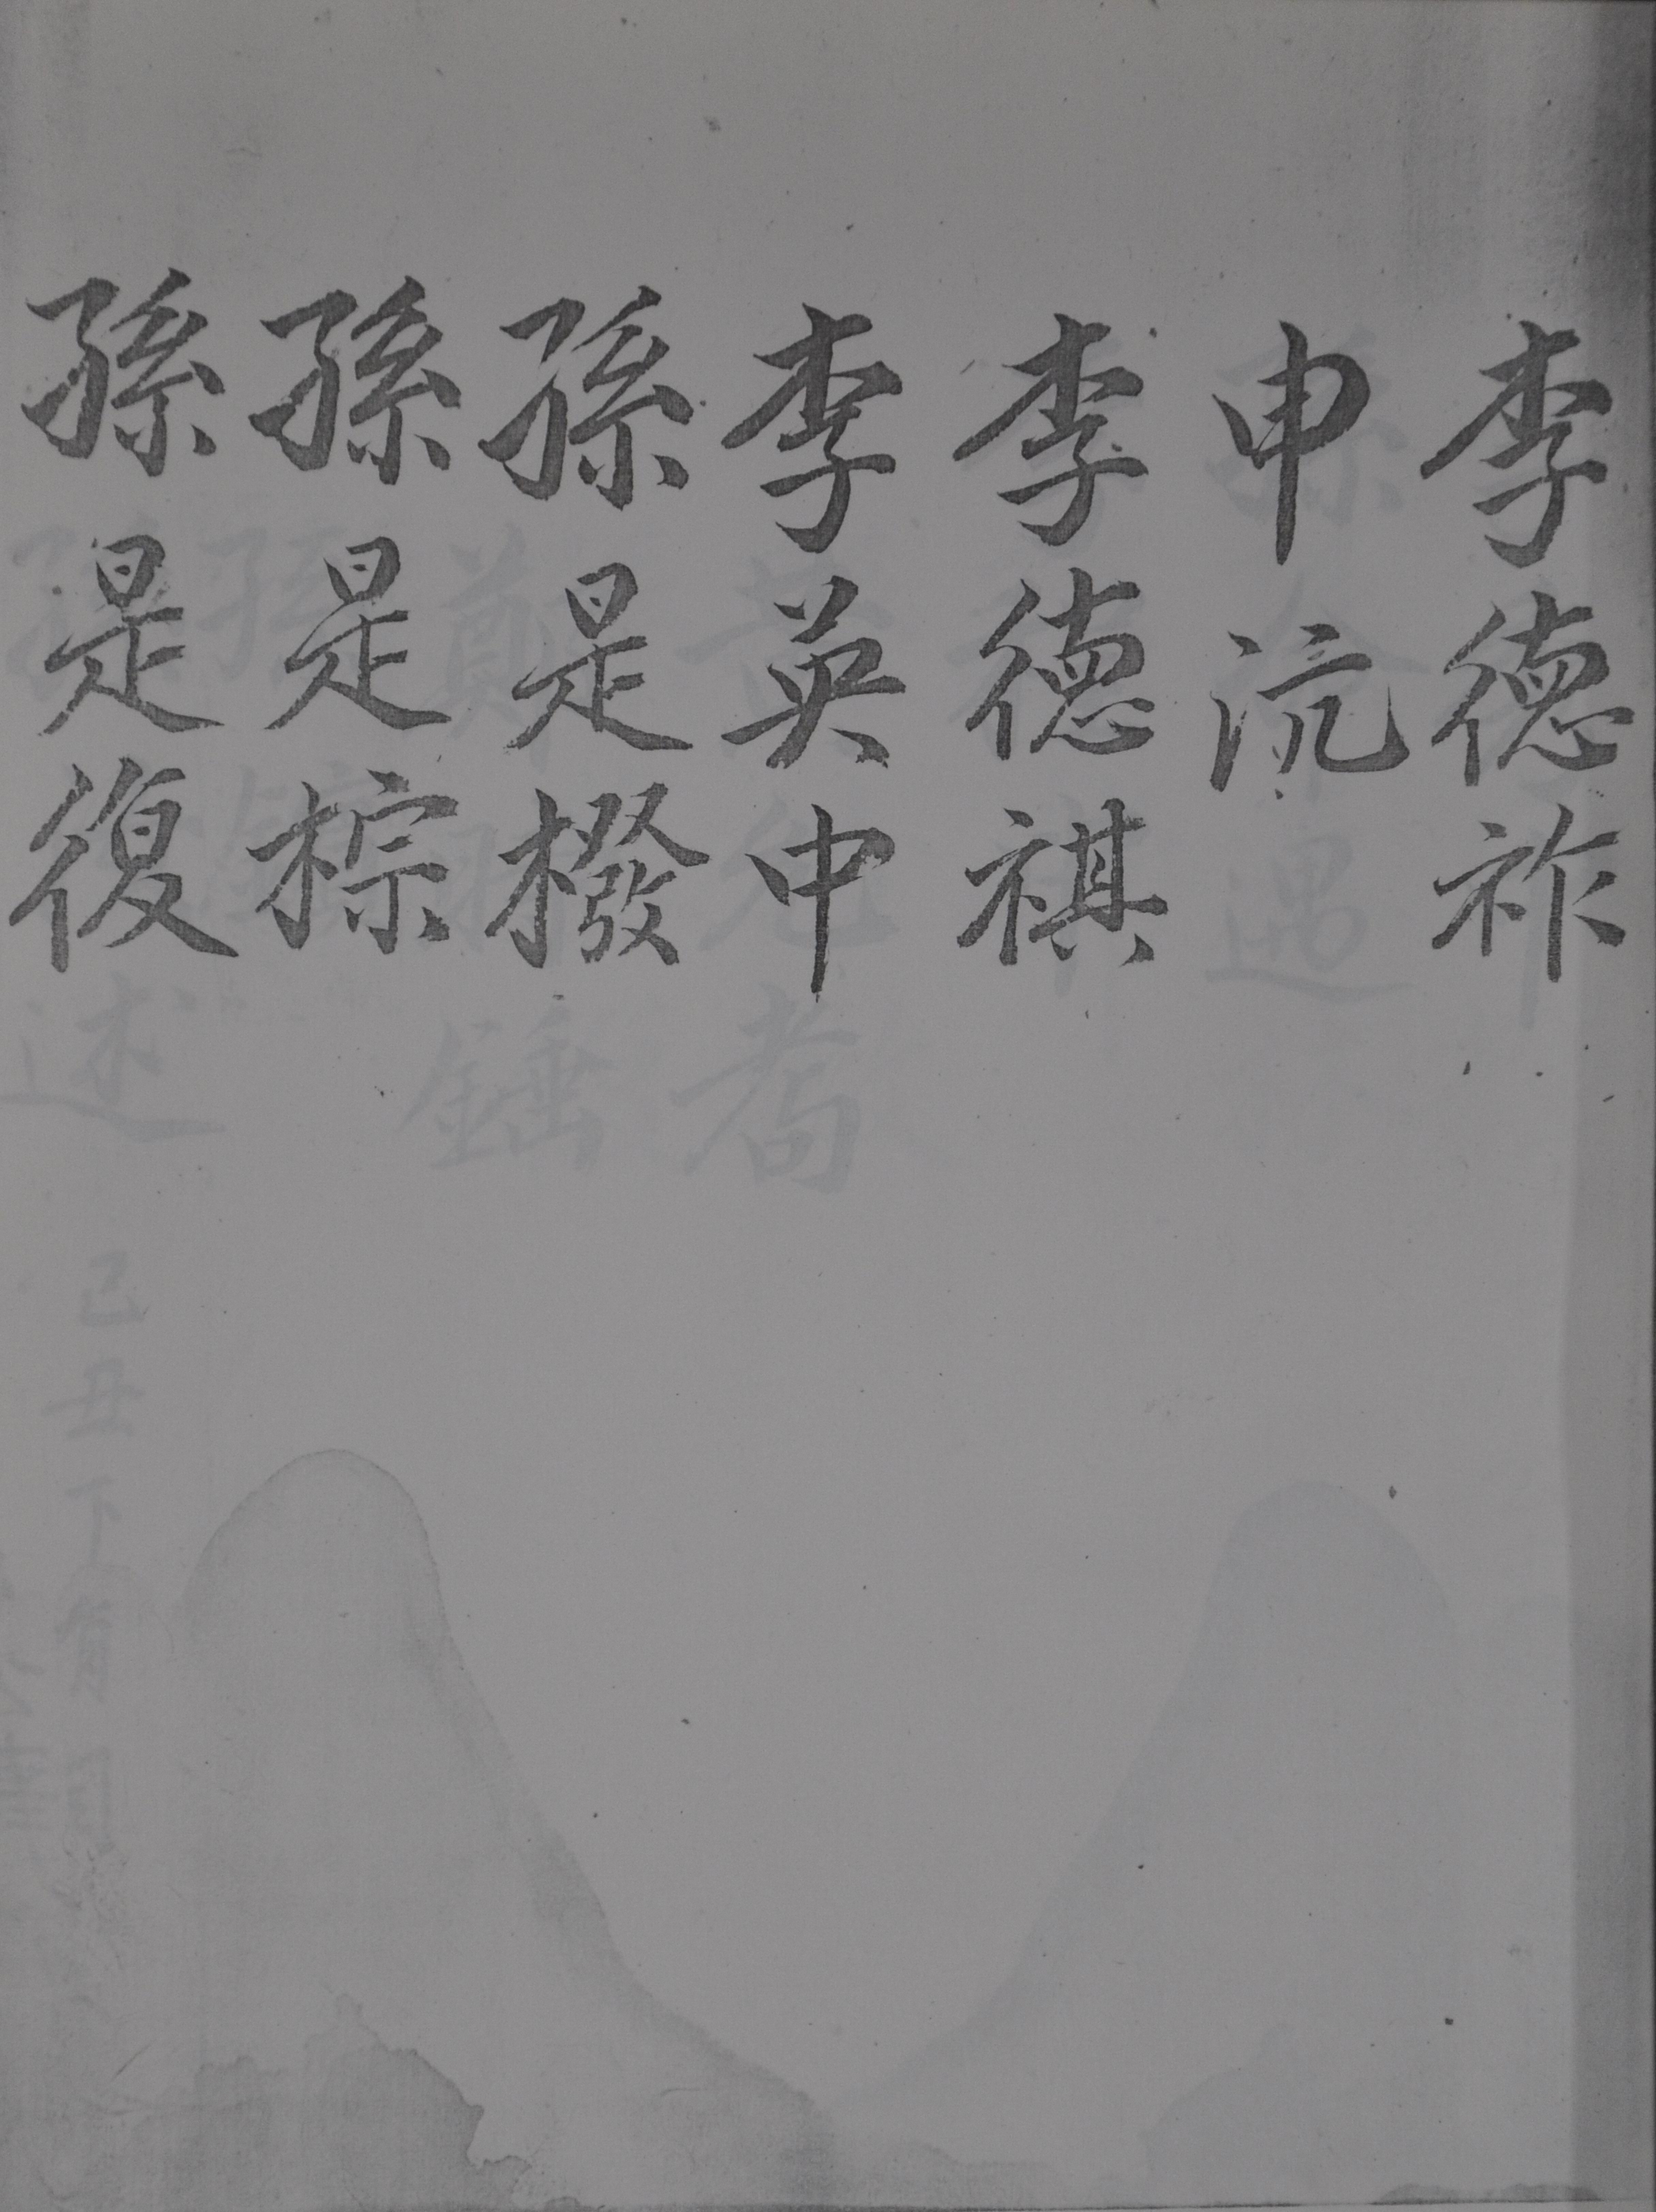 李德祚
申沆
李德祺
李英中
孫是橃
孫是棕
孫是復